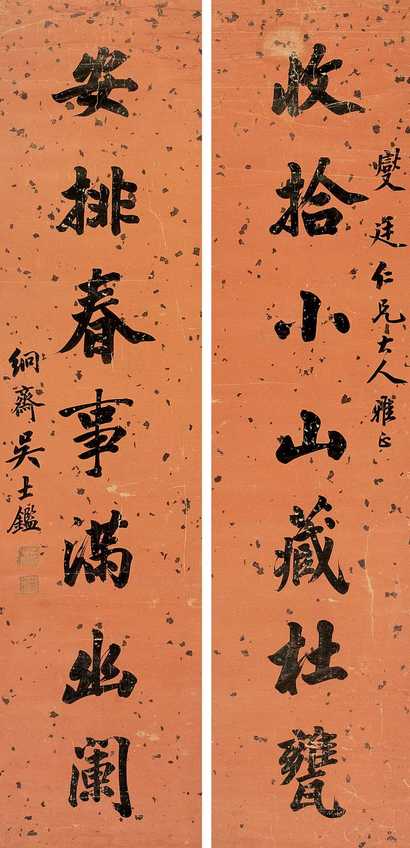 燮廷仁兄大人雅正
收拾小山藏杜甕
安排春事滿幽闌
絅齋吳士鑑